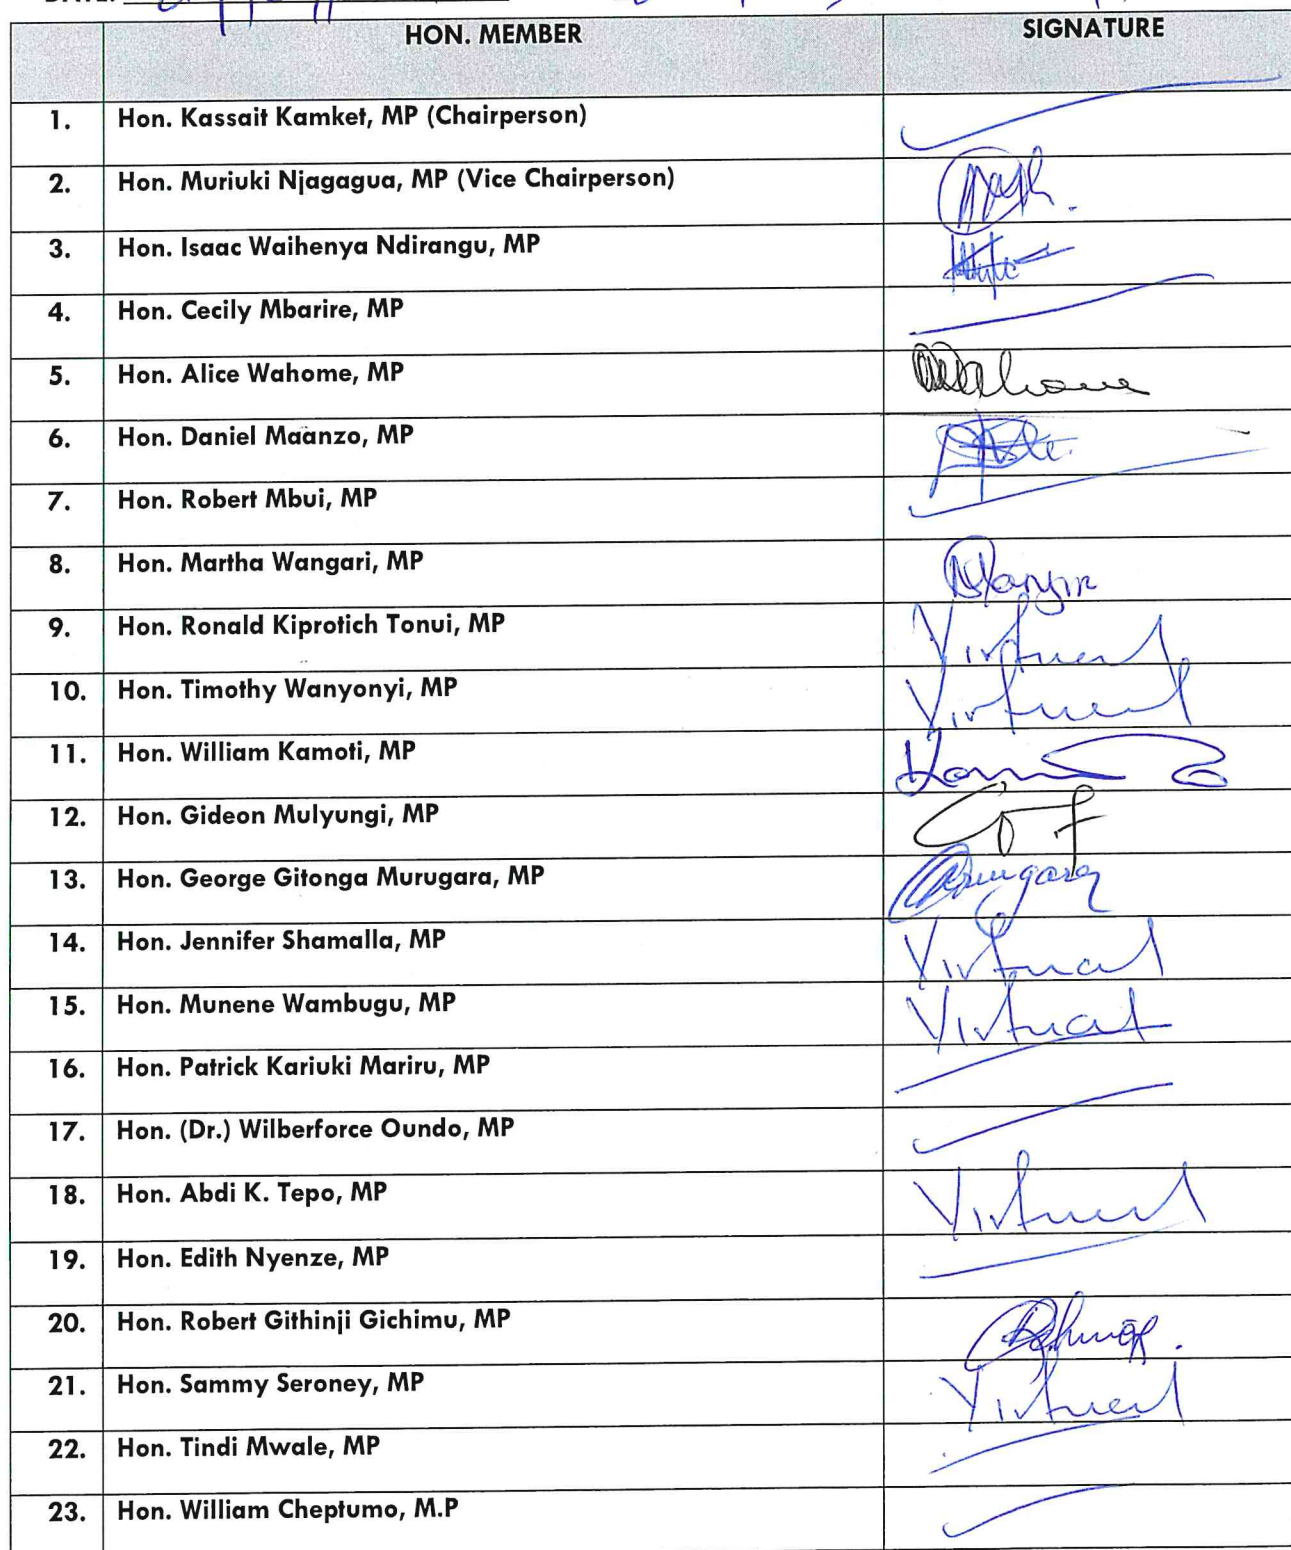 DATE:
HON. MEMBER SIGNATURE
1. Hon. Kassait Kamket, MP (Chairperson)
2. Hon. Muriuki Njagagua, MP (Vice Chairperson)
3. Hon. Isaac Waihenya Ndirangu, MP
4. Hon. Cecily Mbarire, MP
5. Hon. Alice Wahome, MP
6. Hon. Daniel Maanzo, MP
7. Hon. Robert Mbui, MP
8. Hon. Martha Wangari, MP
9. Hon. Ronald Kiprotich Tonui, MP Virtual
10. Hon. Timothy Wanyonyi, MP Virtual
11. Hon. William Kamoti, MP
12. Hon. Gideon Mulyungi, MP
13. Hon. George Gitonga Murugara, MP
14. Hon. Jennifer Shamalla, MP Virtual
15. Hon. Munene Wambugu, MP Virtual
16. Hon. Patrick Kariuki Mariru, MP
17. Hon. (Dr.) Wilberforce Oundo, MP
18. Hon. Abdi K. Tepo, MP Virtual
19. Hon. Edith Nyenze, MP
20. Hon. Robert Githinji Gichimu, MP
21. Hon. Sammy Seroney, MP Virtual
22. Hon. Tindi Mwale, MP
23. Hon. William Cheptumo, M.P